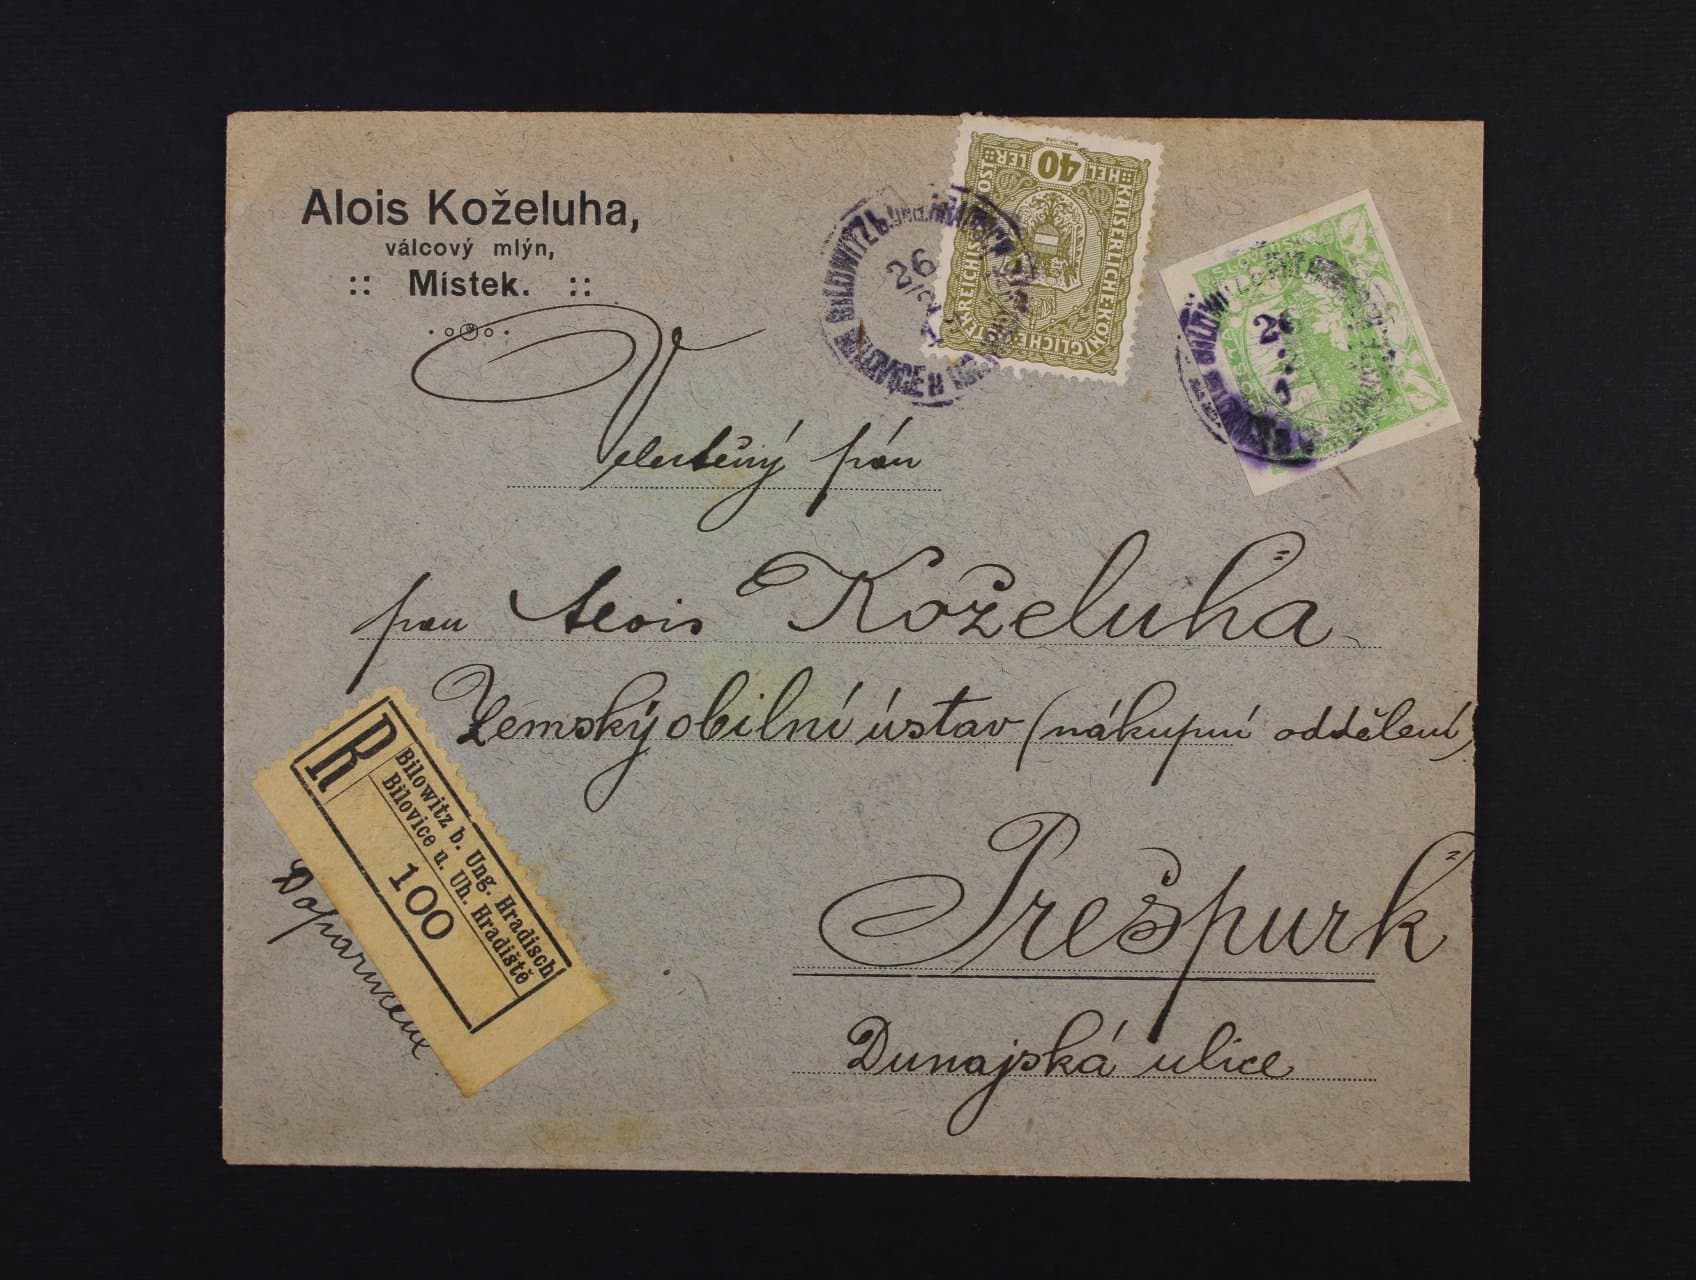 Alois Koželuha,
válcový mlýn,
:: Místek. ::
40
HEL LER
KAISERLICHE KÖNIGLICHE ÖSTERREICHISCHE POST
BILOWITZ b. UNG. HRADISCH
BILOVICE u
26
BILOWITZ
26
Veléctěný pán
pan Alois Koželuha
Zemský obilní ústav (nákupní oddělení)
Prešpurk
Dunajská ulice
R
Bilowitz b. Ung. Hradisch
Bílovice u. Uh. Hradiště
100
Doporučené